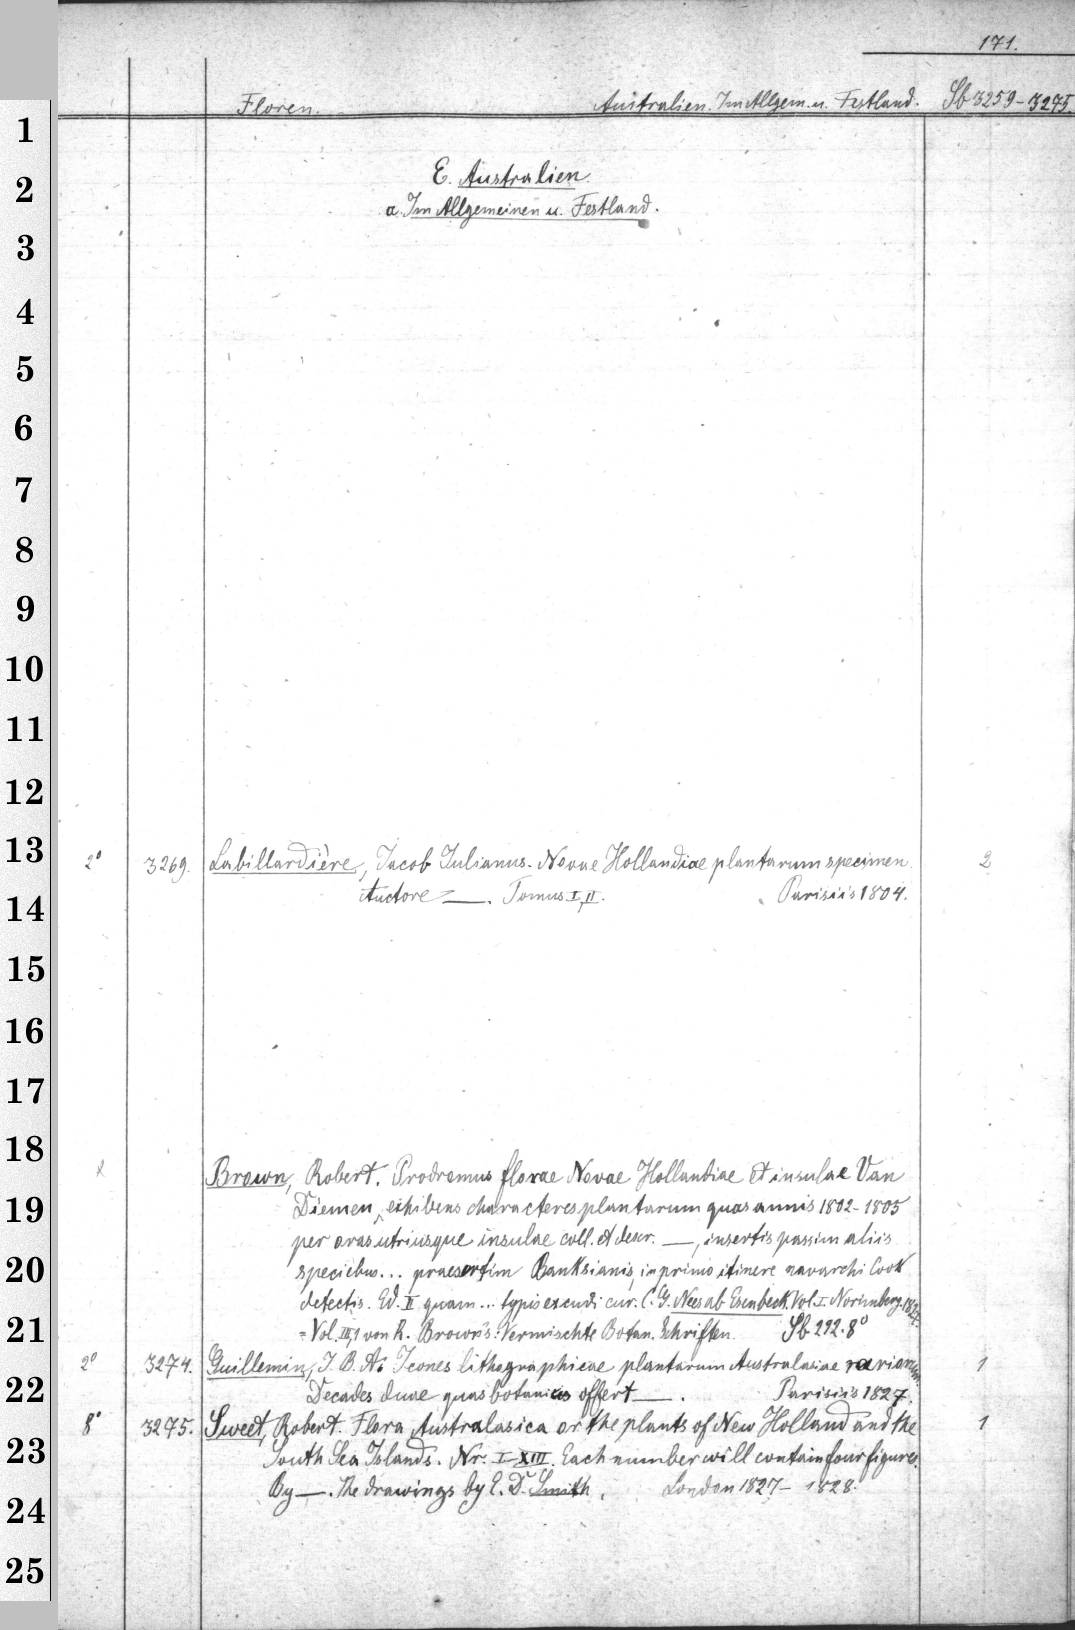 171.
Floren. Australien. Im Allgem. u. Festland. Sb 3259-3275.
E. Australien.
a. Im Allgemeinen u. Festland.
2° 3269. Labillardière, Jacob Julianus. Novae Hollandiae plantarum specimen. 2
Auctore —. Tomus I, II. Parisiis 1804.
Brown, Robert. Prodromus florae Novae Hollandiae et insulae Van
Diemen, exhibens characteres plantarum quas annis 1802-1805
per oras utriusque insulae coll. et descr. —, insertis passim aliis
speciebus... praesertim Banksianis, in primo itinere navarchi Cook
detectis. Ed. II quam... typis excudi cur. C. G. Nees ab Esenbeck. Vol. I. Norimberg. 1827.
= Vol. III, 1 von R. Brown's: Vermischte Botan. Schriften. Sb 292. 8°
2° 3274. Guillemin, J. B. A. Icones lithographicae plantarum Australasiae rariorum 1
Decades duae quas botanicis offert —. Parisiis 1827.
8° 3275. Sweet, Robert. Flora Australasica or the plants of New Holland and the 1
South Sea Islands. Nr. I-XIII. Each number will contain four figures.
By —. The drawings by E. D. Smith. London 1827- 1828.
1
2
3
4
5
6
7
8
9
10
11
12
13
14
15
16
17
18
19
20
21
22
23
24
25